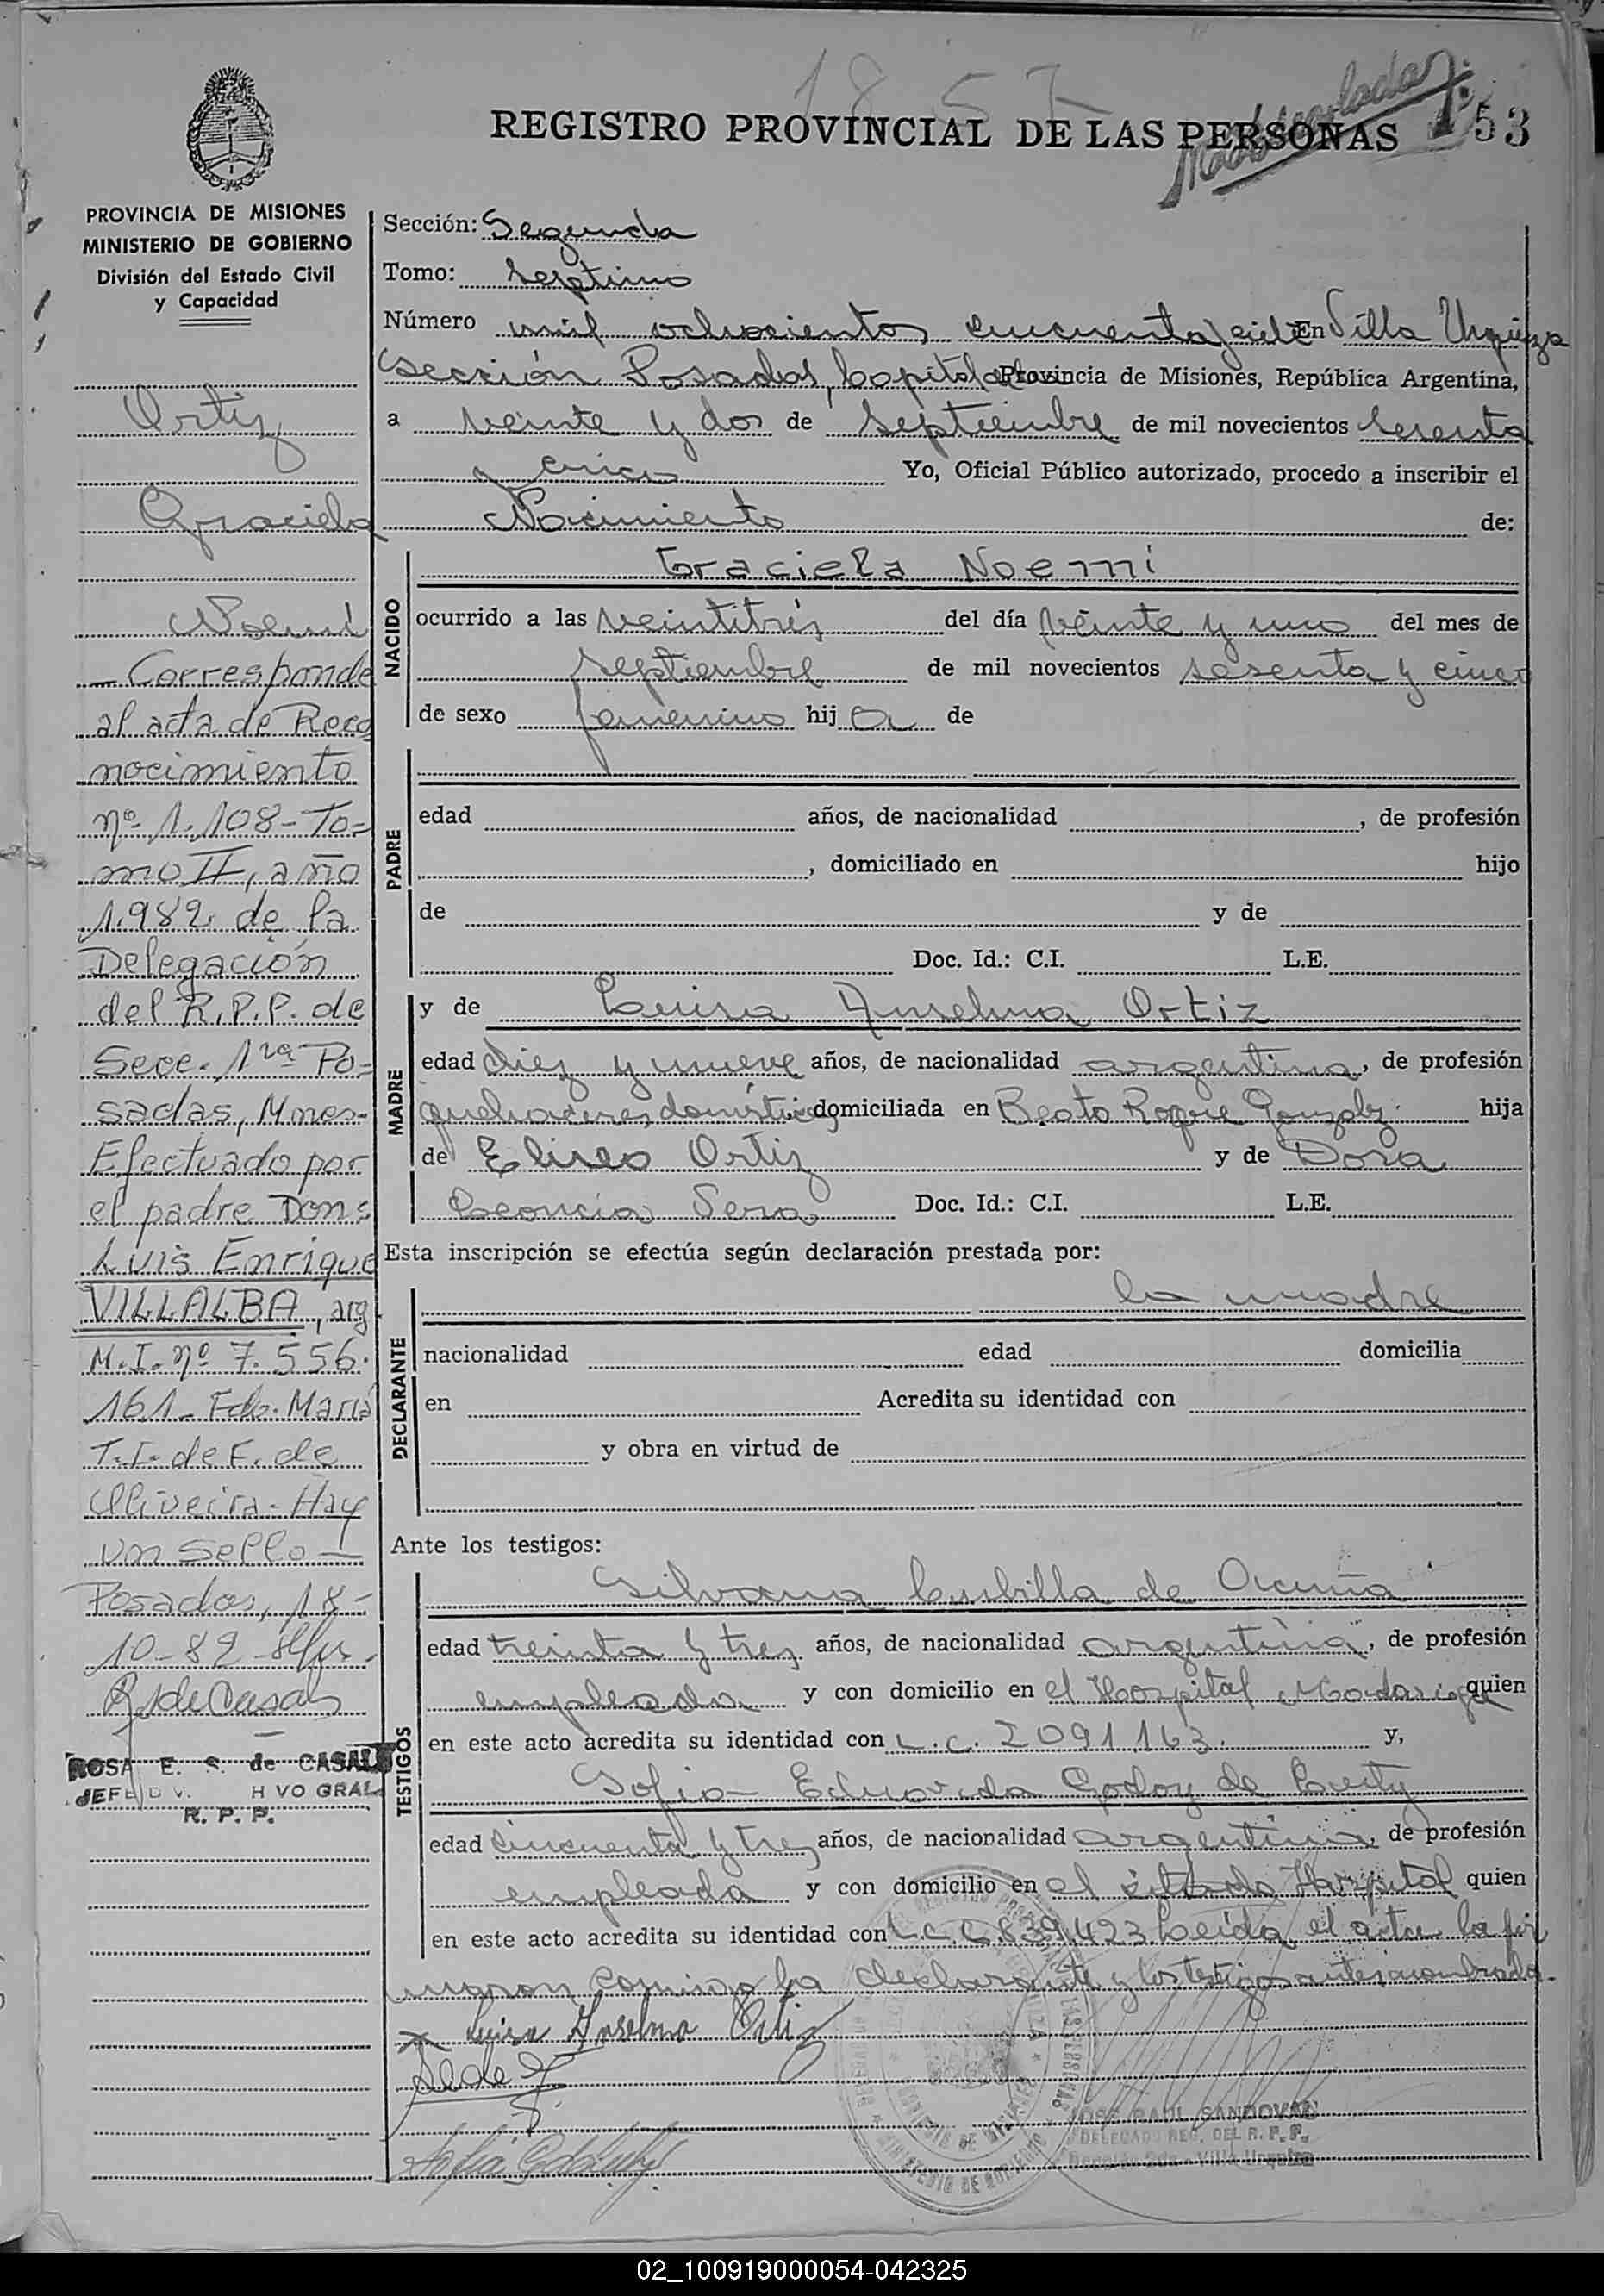 1857
Mod. Scolada
REGISTRO PROVINCIAL DE LAS PERSONAS
153
PROVINCIA DE MISIONES
MINISTERIO DE GOBIERNO
División del Estado Civil
y Capacidad
Ortiz
Graciela
Noemí
— Corresponde
al acta de Reco
nocimiento
nº 1.108 - To=
mo II, año
1.982 de la
Delegación
del R.P.P. de
Secc. 1ra Po=
sadas, Mnes.-
Efectuado por
el padre Don:
Luis Enrique
VILLALBA, arg.
M.I. nº 7.556.
161 - Fdo. María
T.I. de F. de
Oliveira - Hay
un sello -
Posadas, 18-
10-82
R. de Casals
ROSA E. S. de CASALS
JEFE DIV. H VO GRAL
R. P. P.
Sección: Segunda
Tomo: Septimo
Número mil ochocientos cincuenta y siete En Villa Urquiza
Sección Posadas, Capital de la Provincia de Misiones, República Argentina,
a veinte y dos de septiembre de mil novecientos sesenta
y cinco Yo, Oficial Público autorizado, procedo a inscribir el
Nacimiento de:
NACIDO
Graciela Noemi
ocurrido a las veintitrés del día veinte y uno del mes de
septiembre de mil novecientos sesenta y cinco
de sexo femenino hija de
PADRE
edad años, de nacionalidad , de profesión
, domiciliado en hijo
de y de
Doc. Id.: C.I. L.E.
MADRE
y de Luisa Anselma Ortiz
edad diez y nueve años, de nacionalidad argentina, de profesión
quehaceres domésticos domiciliada en Beato Roque Gonzalez hija
de Eliseo Ortiz y de Dora
Leoncia Sena Doc. Id.: C.I. L.E.
Esta inscripción se efectúa según declaración prestada por:
DECLARANTE
la madre
nacionalidad edad domicilia
en Acredita su identidad con
y obra en virtud de
Ante los testigos:
TESTIGOS
Silvana Cubilla de Ocuña
edad treinta y tres años, de nacionalidad argentina, de profesión
empleada y con domicilio en el Hospital Madariaga quien
en este acto acredita su identidad con L.C. 2091163. y,
Sofia Eduvarda Godoy de
edad cincuenta y tres años, de nacionalidad argentina, de profesión
empleada y con domicilio en el citado Hospital quien
en este acto acredita su identidad con L.C. 6.839.423 Leída el acta la fir
maron conmigo la declarante y los testigos antes nombrados.
x Luisa Anselma Ortiz
JOSE RAUL SANDOVAL
DELEGADO REG. DEL R. P. P.
Sección 2da - Villa Urquiza
02_100919000054-042325